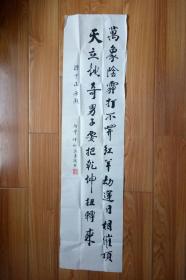 萬象陰霾打不開紅羊劫運日相催頂
天立地奇男子要把乾坤扭轉來